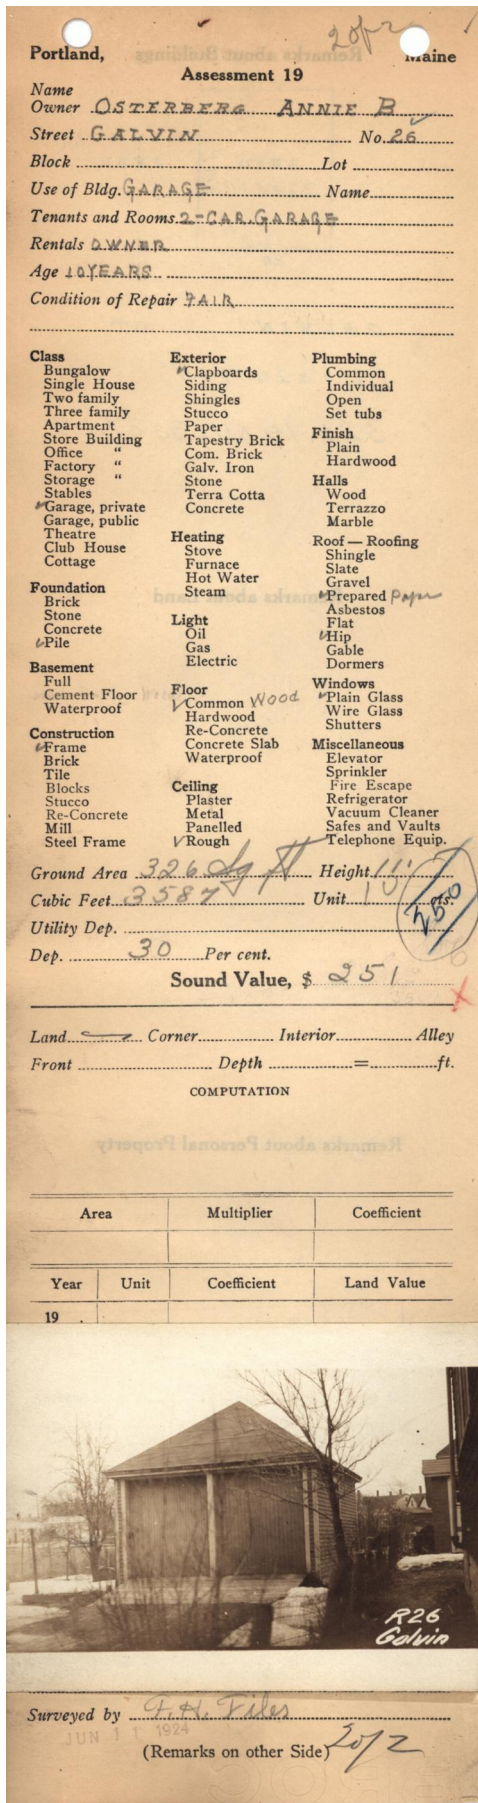 2 of 2
Portland, Maine
Assessment 19
Name
Owner OSTERBERG ANNIE B
Street GALVIN No. 26
Block Lot
Use of Bldg. GARAGE Name
Tenants and Rooms 2-CAR. GARAGE
Rentals OWNER
Age 10 YEARS
Condition of Repair FAIR
Class
Bungalow
Single House
Two family
Three family
Apartment
Store Building
Office "
Factory "
Storage "
Stables
✓Garage, private
Garage, public
Theatre
Club House
Cottage
Foundation
Brick
Stone
Concrete
✓Pile
Basement
Full
Cement Floor
Waterproof
Construction
✓Frame
Brick
Tile
Blocks
Stucco
Re-Concrete
Mill
Steel Frame
Exterior
✓Clapboards
Siding
Shingles
Stucco
Paper
Tapestry Brick
Com. Brick
Galv. Iron
Stone
Terra Cotta
Concrete
Heating
Stove
Furnace
Hot Water
Steam
Light
Oil
Gas
Electric
Floor
✓Common Wood
Hardwood
Re-Concrete
Concrete Slab
Waterproof
Ceiling
Plaster
Metal
Panelled
✓Rough
Plumbing
Common
Individual
Open
Set tubs
Finish
Plain
Hardwood
Halls
Wood
Terrazzo
Marble
Roof — Roofing
Shingle
Slate
Gravel
✓Prepared Paper
Asbestos
Flat
✓Hip
Gable
Dormers
Windows
✓Plain Glass
Wire Glass
Shutters
Miscellaneous
Elevator
Sprinkler
Fire Escape
Refrigerator
Vacuum Cleaner
Safes and Vaults
Telephone Equip.
Ground Area 326 Sq ft Height 11'
Cubic Feet 3587 Unit 10 cts.
250
Utility Dep.
Dep. 30 Per cent.
Sound Value, $ 251
Land Corner Interior Alley
Front Depth = ft.
COMPUTATION
Area Multiplier Coefficient
Year Unit Coefficient Land Value
19 .
R26
Galvin
Surveyed by F. H. Files
JUN 11 1924
(Remarks on other Side) 2 of 2